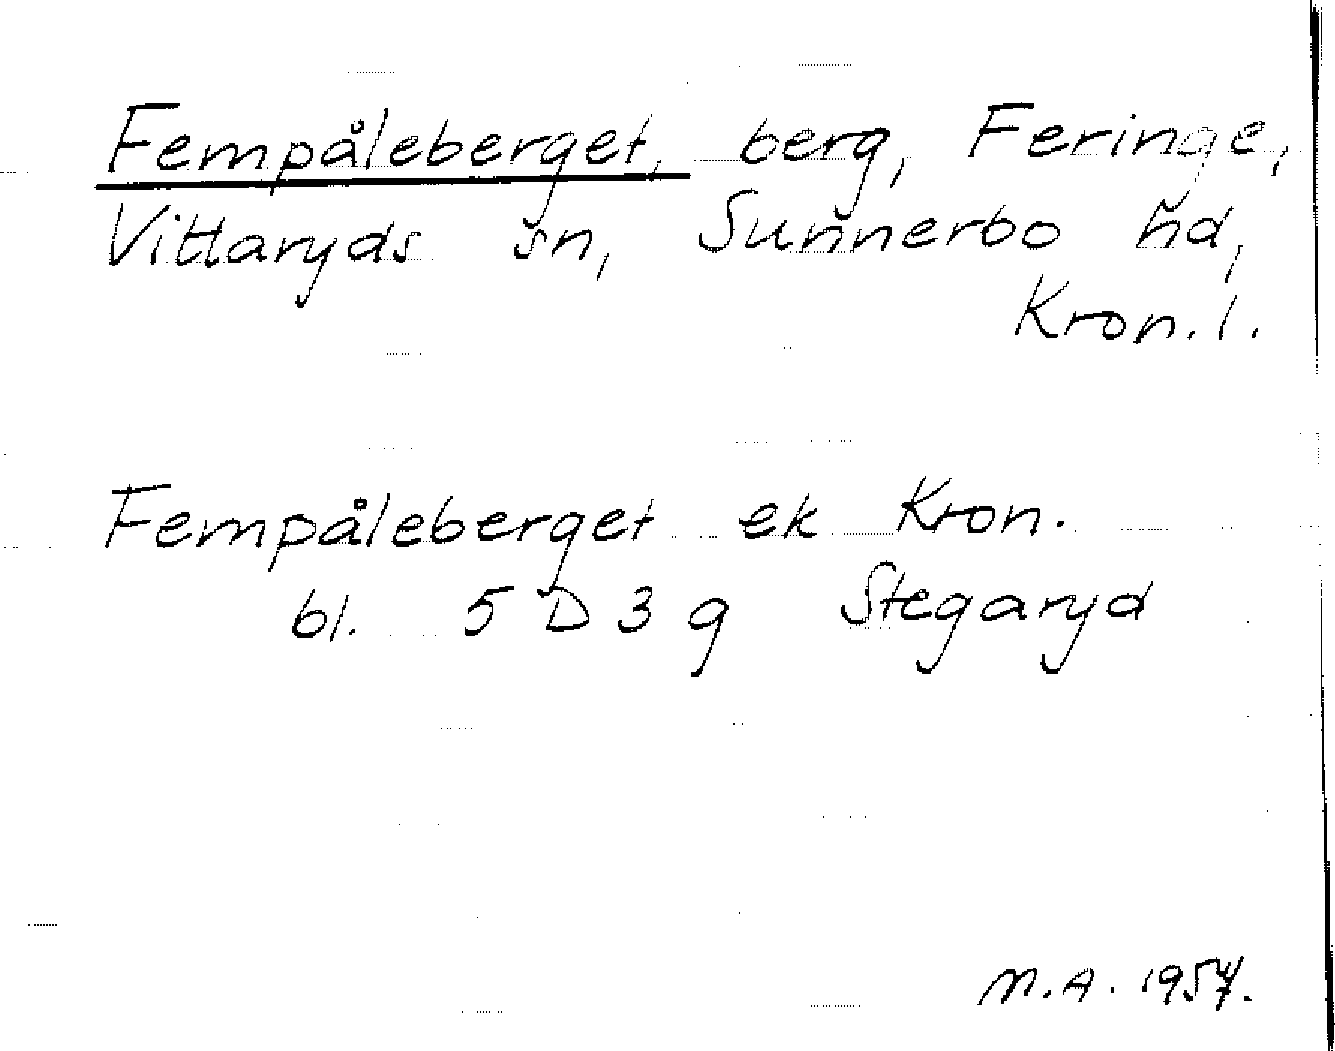 Fempåleberget, berg, Feringe,
Vittaryds sn, Sunnerbo hd,
Kron. l.
Fempåleberget ek Kron.
bl. 5 D 3 g Stegaryd
M.A. 1957.